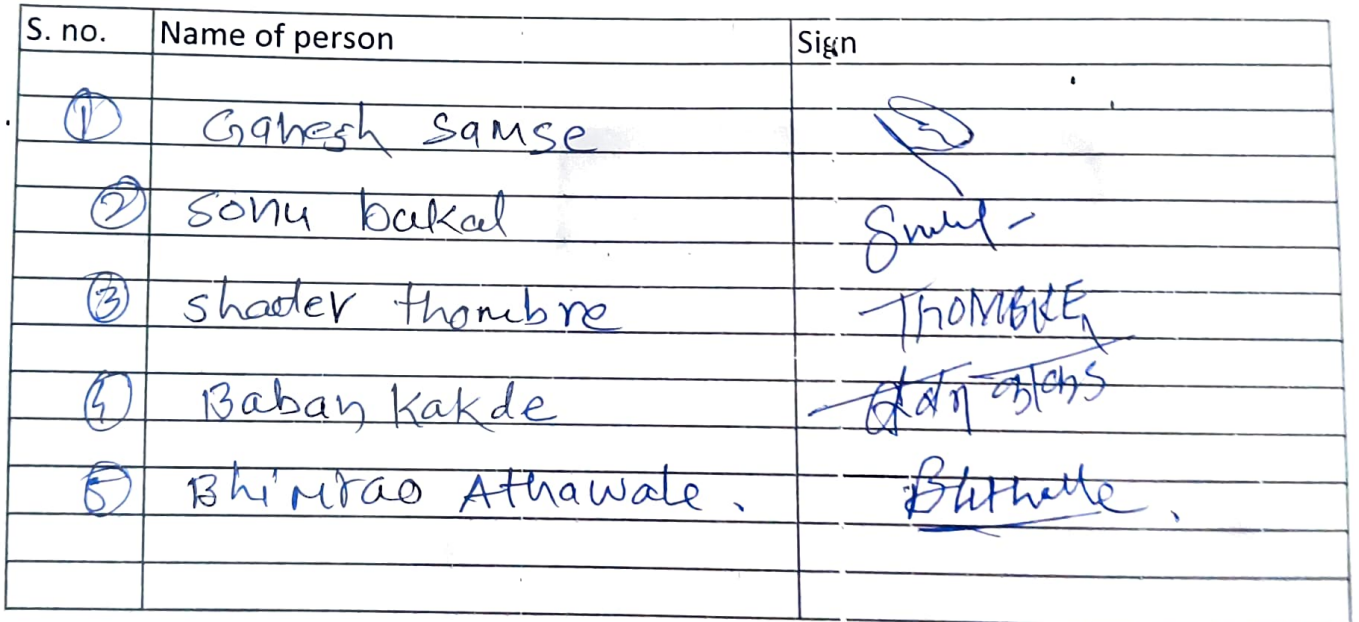 S. no. Name of person Sign
① Ganesh Samse
② Sonu bakal
③ shadev thombre THOMBRE
④ Baban Kakde
⑤ Bhimrao Athawale.